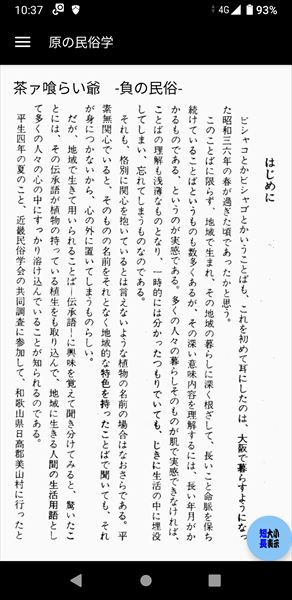 10:37
4G
93%
原の民俗学
茶ァ喰らい爺 -負の民俗-
はじめに
ビシャコとかビシャゴとかいうことばも、これを初めて耳にしたのは、大阪で暮らすようになっ
た昭和三六年の春が過ぎた頃であったかと思う。
このことばに限らず、地域で生まれ、その地域の暮らしに深く根ざして、長いこと命脈を保ち
続けていることばというものも数多くあるが、その深い意味内容を理解するには、長い年月がか
かるものである、というのが実感である。多くの人々の暮らしそのものが肌で実感できなければ、
ことばの理解も浅薄なものとなり、一時的には分かったつもりでいても、じきに生活の中に埋没
してしまい、忘れてしまうものなのである。
それも、格別に関心を抱いているとは言えないような植物の名前の場合はなおさらである。平
素無関心でいると、そのものの名前をそれとなく地域的な特色を持ったことばで聞いても、それ
が身につかないから、心の外に置いてしまうものらしい。
だが、地域で生きて用いられることば―伝承語―に興味を覚えて聞き分けてみると、驚いたこ
とには、その伝承語が植物の持っている植生をも取り込んで、地域に生きる人間の生活用語とし
て多くの人々の心の中にすっかり溶け込んでいることが知られるのである。
平生四年の夏のこと、近畿民俗学会の共同調査に参加して、和歌山県日高郡美山村に行ったと
短大小
長表示